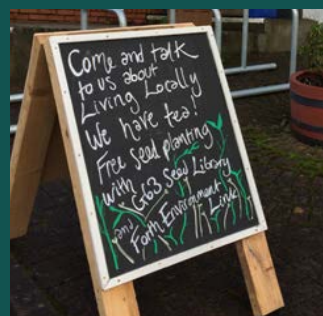 Come and talk
to us about
Living Locally
We have tea!
Free seed planting
with G63 Seed Library
and
Forth Environment
Link